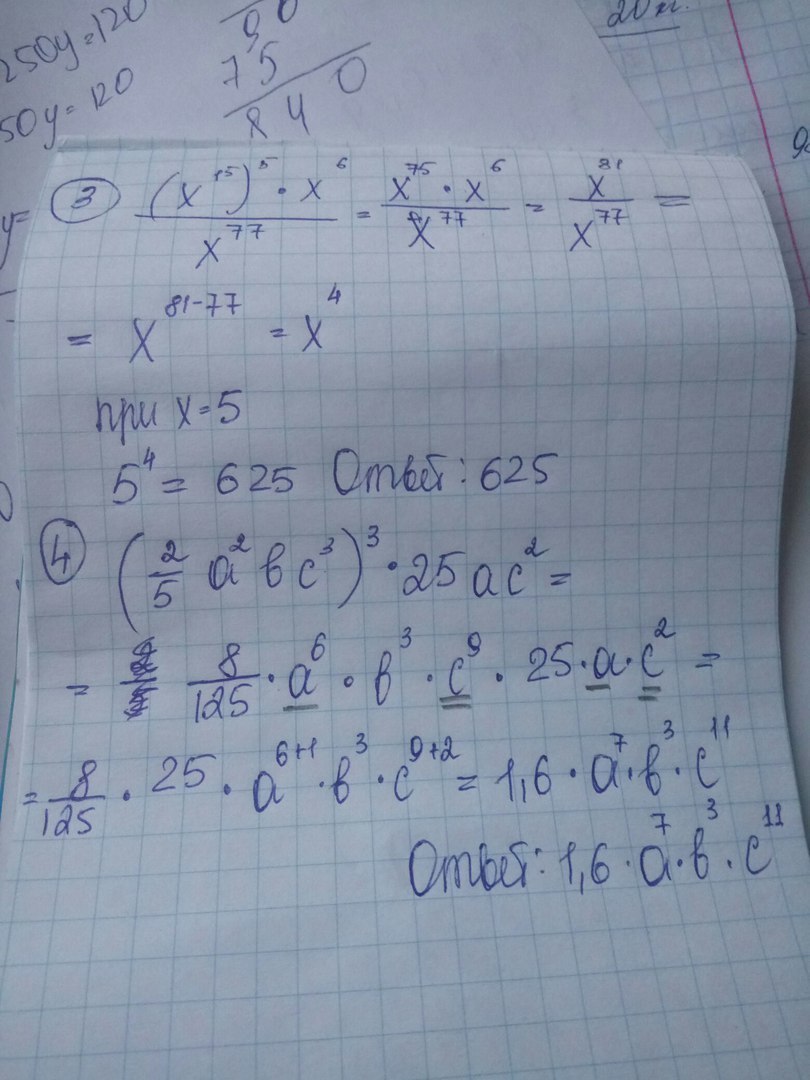 250y=120
50y=120
90
75
840
20 м.
y=
③ (x¹⁵)⁵ · x⁶ / x⁷⁷ = x⁷⁵ · x⁶ / x⁷⁷ = x⁸¹ / x⁷⁷ =
= x⁸¹⁻⁷⁷ = x⁴
при x=5
5⁴ = 625 Ответ: 625
④ (2/5 a² в c³)³ · 25 a c² =
= 8/125 · a⁶ · в³ · c⁹ · 25 · a · c² =
= 8/125 · 25 · a⁶⁺¹ · в³ · c⁹⁺² = 1,6 · a⁷ · в³ · c¹¹
Ответ: 1,6 · a⁷ · в³ · c¹¹